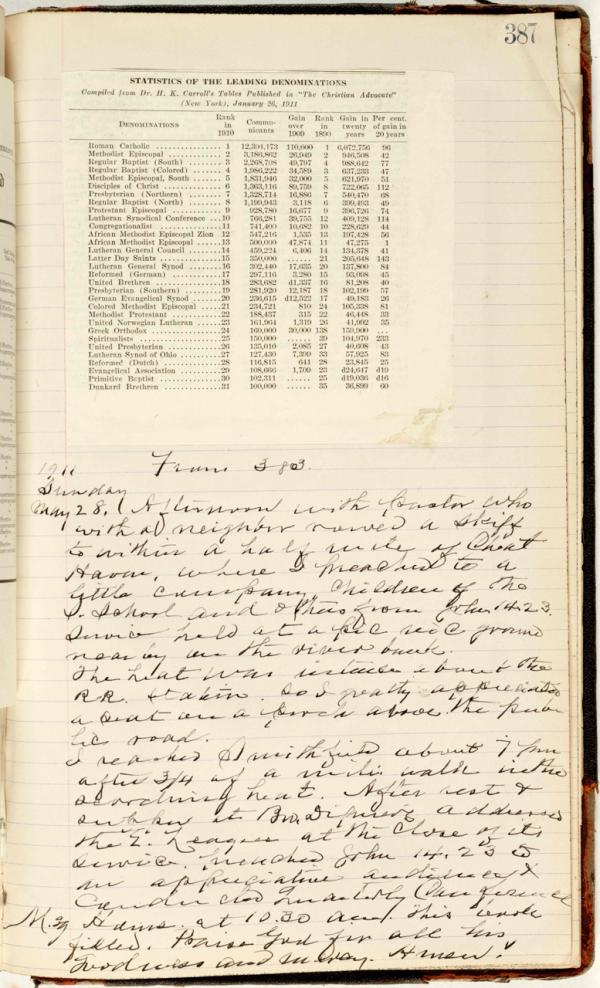 387
STATISTICS OF THE LEADING DENOMINATIONS
Compiled from Dr. H. K. Carroll's Tables Published in "The Christian Advocate"
(New York), January 26, 1911
DENOMINATIONS Rank in 1910 Communicants Gain over 1909 Rank in 1890 Gain in twenty years Per cent. of gain in 20 years
Roman Catholic 1 12,304,173 110,000 1 6,072,756 96
Methodist Episcopal 2 3,186,862 26,949 2 946,508 42
Regular Baptist (South) 3 2,268,708 49,797 4 988,642 77
Regular Baptist (Colored) 4 1,986,222 34,589 3 637,233 47
Methodist Episcopal, South 5 1,831,946 32,000 5 621,970 51
Disciples of Christ 6 1,363,116 89,759 8 722,065 112
Presbyterian (Northern) 7 1,328,714 16,886 7 540,470 68
Regular Baptist (North) 8 1,199,943 3,118 6 399,493 49
Protestant Episcopal 9 928,780 16,677 9 396,726 74
Lutheran Synodical Conference 10 766,281 39,755 12 409,128 114
Congregationalist 11 741,400 10,682 10 228,629 44
African Methodist Episcopal Zion 12 547,216 1,535 13 197,428 56
African Methodist Episcopal 13 500,000 47,874 11 47,275 1
Lutheran General Council 14 459,224 6,406 14 134,378 41
Latter Day Saints 15 350,000 ...... 21 205,648 143
Lutheran General Synod 16 302,440 17,635 20 137,800 84
Reformed (German) 17 297,116 3,280 15 93,098 45
United Brethren 18 283,682 d1,337 16 81,208 40
Presbyterian (Southern) 19 281,920 12,187 18 102,199 57
German Evangelical Synod 20 236,615 d12,522 17 49,183 26
Colored Methodist Episcopal 21 234,721 810 24 105,338 81
Methodist Protestant 22 188,437 315 22 46,448 33
United Norwegian Lutheran 23 161,964 1,319 26 41,992 35
Greek Orthodox 24 160,000 30,000 138 159,900 ....
Spiritualists 25 150,000 ...... 39 104,970 233
United Presbyterian 26 135,010 2,085 27 40,608 43
Lutheran Synod of Ohio 27 127,430 7,399 33 57,925 83
Reformed (Dutch) 28 116,815 641 28 23,845 25
Evangelical Association 29 108,666 1,709 23 d24,647 d19
Primitive Baptist 30 102,311 ...... 25 d19,036 d16
Dunkard Brethren 31 100,000 ...... 35 36,899 60
1911 From 383.
Sunday
May 28, Afternoon with Pastor who
with a neighbor rowed a skiff
to within a half mile of Cheat
Haven, where I preached to a
little company, Children of the
S. School and others from John 14.23.
Service held at a pic nic ground
near by on the river bank.
The heat was intense about the
R.R. Station. So I greatly appreciated
a seat on a porch above the pub
lic road.
I reached Smithfield about 7 pm
after 3/4 of a mile walk in the
scorching heat. After rest &
supper at Bro. addressed
the E. League at the close of its
service. Preached John 14.23 to
an appreciative audience &
conducted Quarterly Conference
M. 29 Home at 10.30 am. This book
filled. Praise God for all his
Goodness and mercy. Amen!